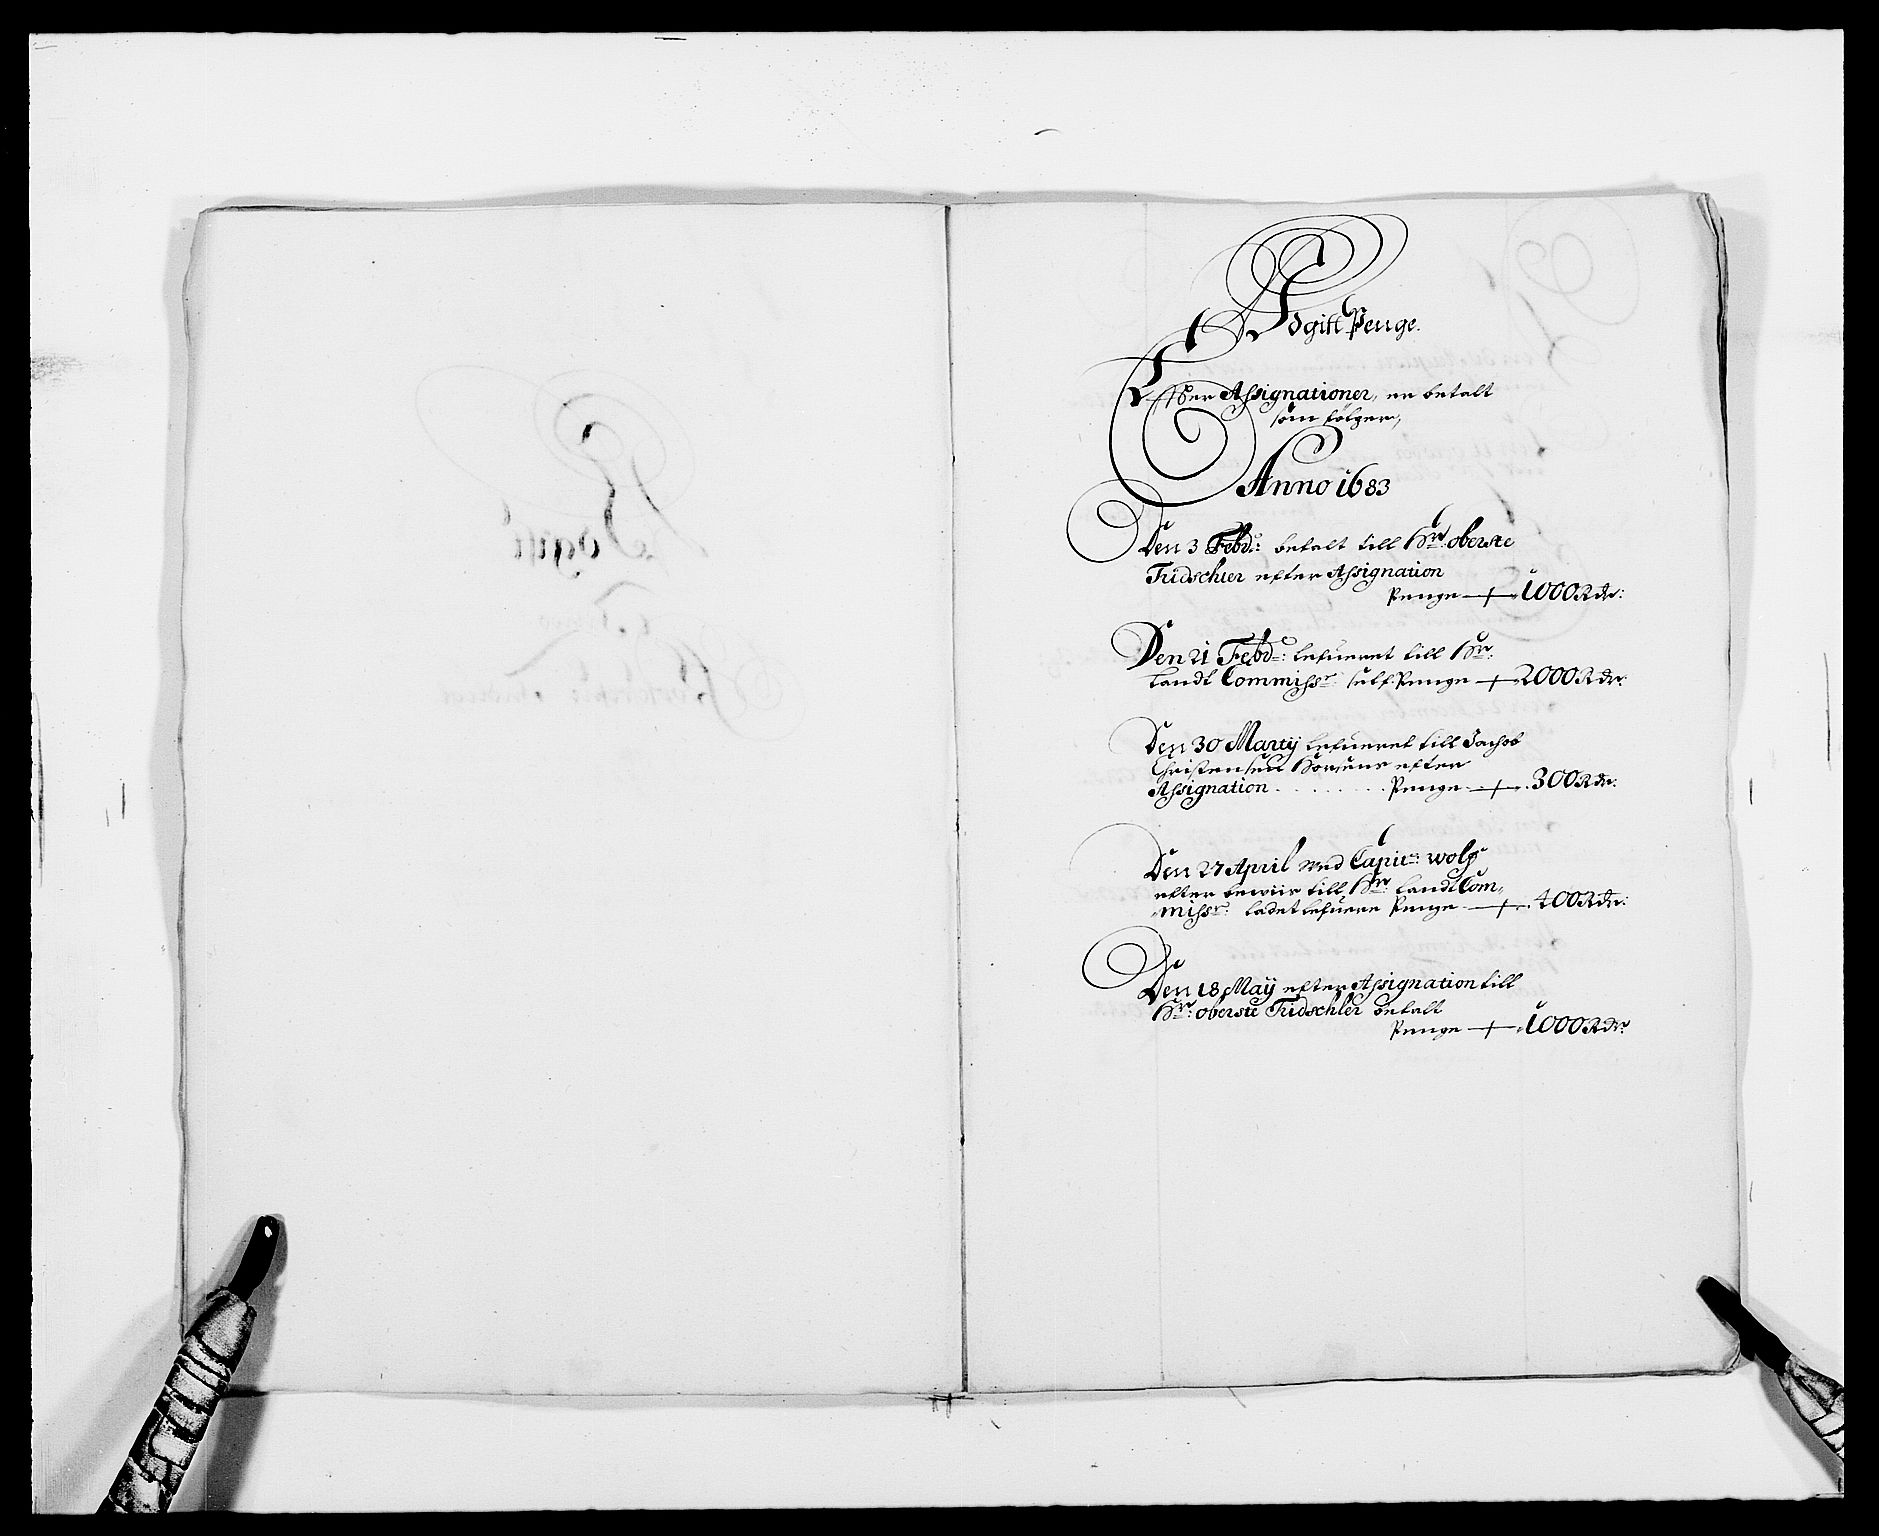 Udgift Penge.
Efter Assignationer, er betalt
som følger,
Anno 1683
Den 3 Febr: betalt till Hr: oberste
Tridschler efter Assignation
Penge 1000 Rdr:
Den 21 Febr: lefueret till Hr:
Landt Commissr: sulf: Penge 2000 Rdr:
Den 30 Marty lefueret till Jachob
Christensen Horsens efter
Assignation . . . . . . . Penge 300 Rdr:
Den 27 April ved Capit: wolf
efter beviis till Hr: Landt Com,
missr: ladet lefuere Penge 400 Rdr:
Den 18 Maÿ efter Assignation till
Hr: oberste Tridschler betalt
Penge 1000 Rdr: